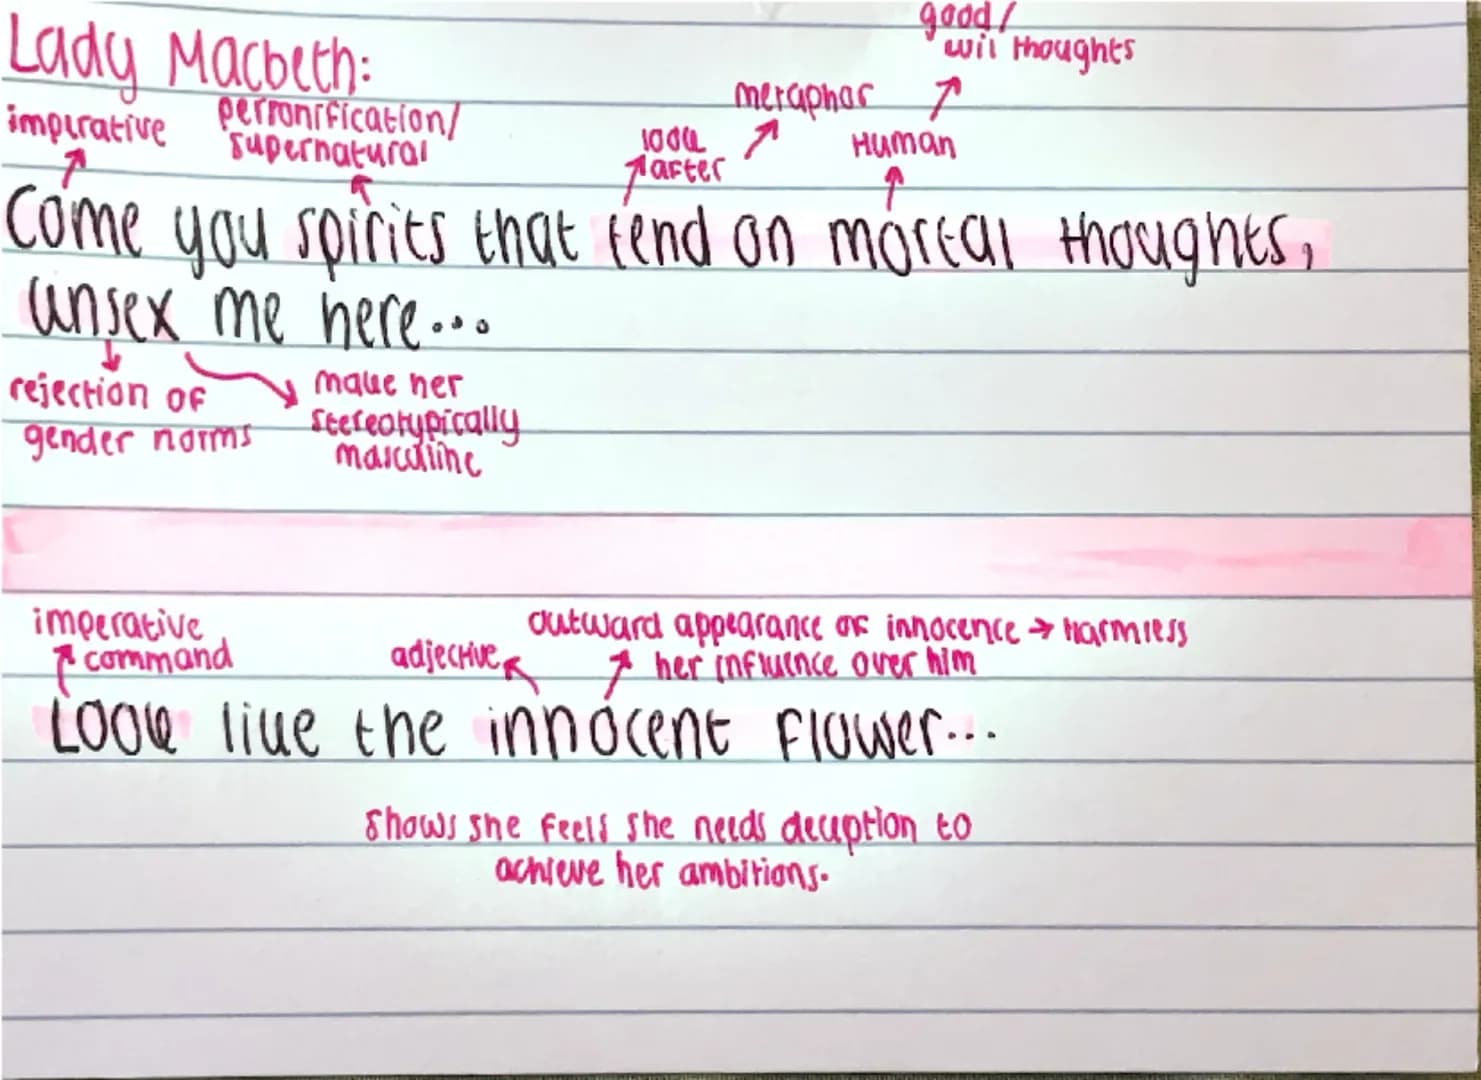 good/
evil thoughts
Lady Macbeth:
metaphor
imperative personification/
supernatural
look
after
Human
Come you spirits that tend on mortal thoughts,
unsex me here...
rejection of
gender norms
make her
stereotypically
masculine
imperative
command
adjective
outward appearance of innocence → harmless
her influence over him
Look like the innocent flower...
Shows she feels she needs deception to
achieve her ambitions.